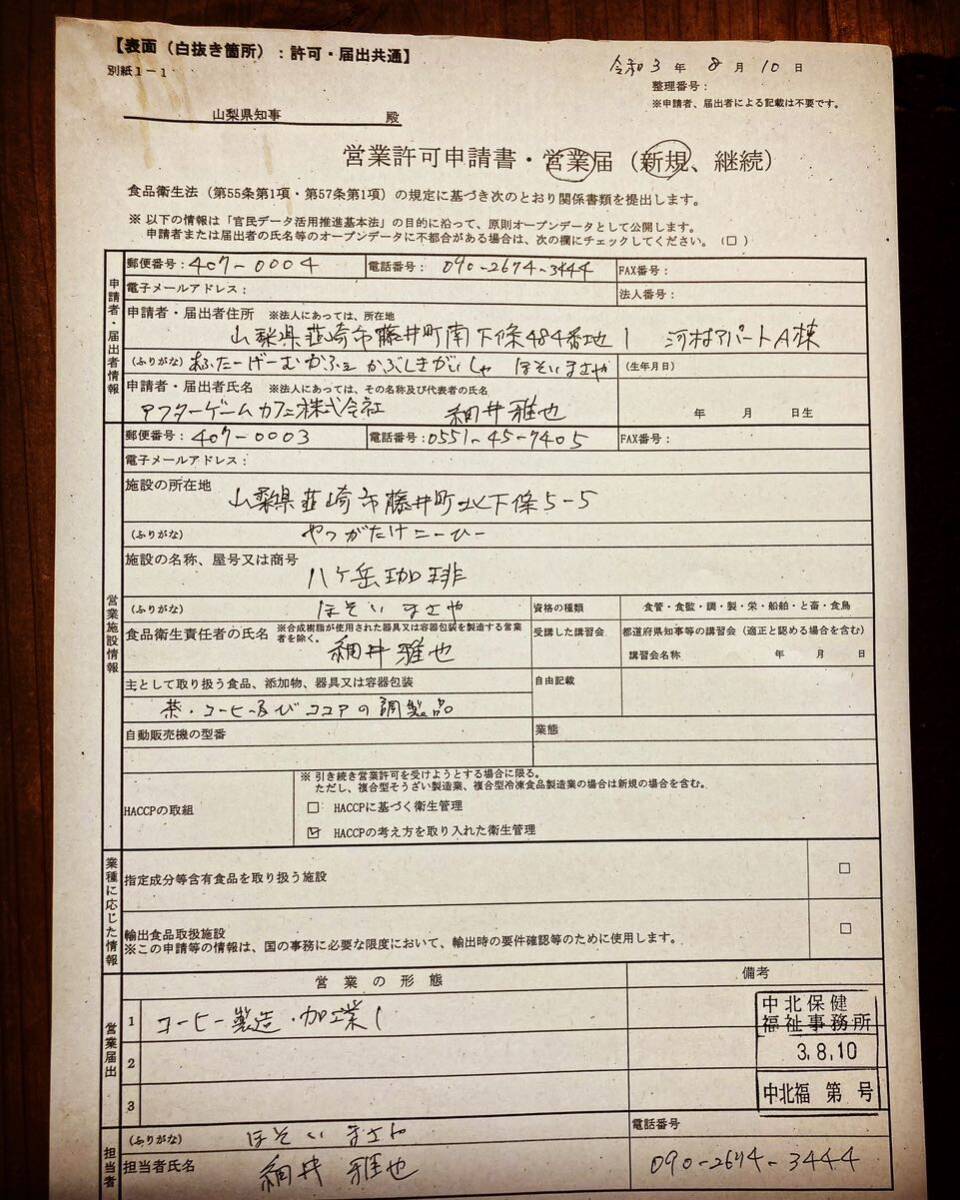 【表面（白抜き箇所）：許可・届出共通】
別紙１－１
令和 3 年 8 月 10 日
整理番号：
※申請者、届出者による記載は不要です。
山梨県知事 殿
営業許可申請書・営業届（新規、継続）
食品衛生法（第55条第1項・第57条第1項）の規定に基づき次のとおり関係書類を提出します。
※ 以下の情報は「官民データ活用推進基本法」の目的に沿って、原則オープンデータとして公開します。
申請者または届出者の氏名等のオープンデータに不都合がある場合は、次の欄にチェックしてください。（□）
申請者・届出者情報
郵便番号：407-0004 電話番号：090-2674-3444 FAX番号：
電子メールアドレス： 法人番号：
申請者・届出者住所 ※法人にあっては、所在地
山梨県韮崎市藤井町南下條484番地1 河村アパートA棟
（ふりがな） あふたーげーむかふぇ かぶしきがいしゃ ほそい まさや （生年月日）
申請者・届出者氏名 ※法人にあっては、その名称及び代表者の氏名
アフターゲームカフェ株式会社 細井雅也 年 月 日生
営業施設情報
郵便番号：407-0003 電話番号：0551-45-7405 FAX番号：
電子メールアドレス：
施設の所在地
山梨県韮崎市藤井町北下條5-5
（ふりがな） やつがたけこーひー
施設の名称、屋号又は商号
八ケ岳珈琲
（ふりがな） ほそい まさや 資格の種類 食管・食監・調・製・栄・船舶・と畜・食鳥
食品衛生責任者の氏名 ※合成樹脂が使用された器具又は容器包装を製造する営業者を除く。 受講した講習会 都道府県知事等の講習会（適正と認める場合を含む）
細井雅也 講習会名称 年 月 日
主として取り扱う食品、添加物、器具又は容器包装 自由記載
茶・コーヒー及びココアの調製品
自動販売機の型番 業態
HACCPの取組
※ 引き続き営業許可を受けようとする場合に限る。
ただし、複合型そうざい製造業、複合型冷凍食品製造業の場合は新規の場合を含む。
□ HACCPに基づく衛生管理
☑ HACCPの考え方を取り入れた衛生管理
業種に応じた情報
指定成分等含有食品を取り扱う施設 □
輸出食品取扱施設 □
※この申請等の情報は、国の事務に必要な限度において、輸出時の要件確認等のために使用します。
営業届出
営業の形態 備考
1 コーヒー製造・加工業
2
3
中北保健
福祉事務所
3.8.10
中北福 第 号
担当者
（ふりがな） ほそい まさや 電話番号
担当者氏名 細井 雅也 090-2674-3444